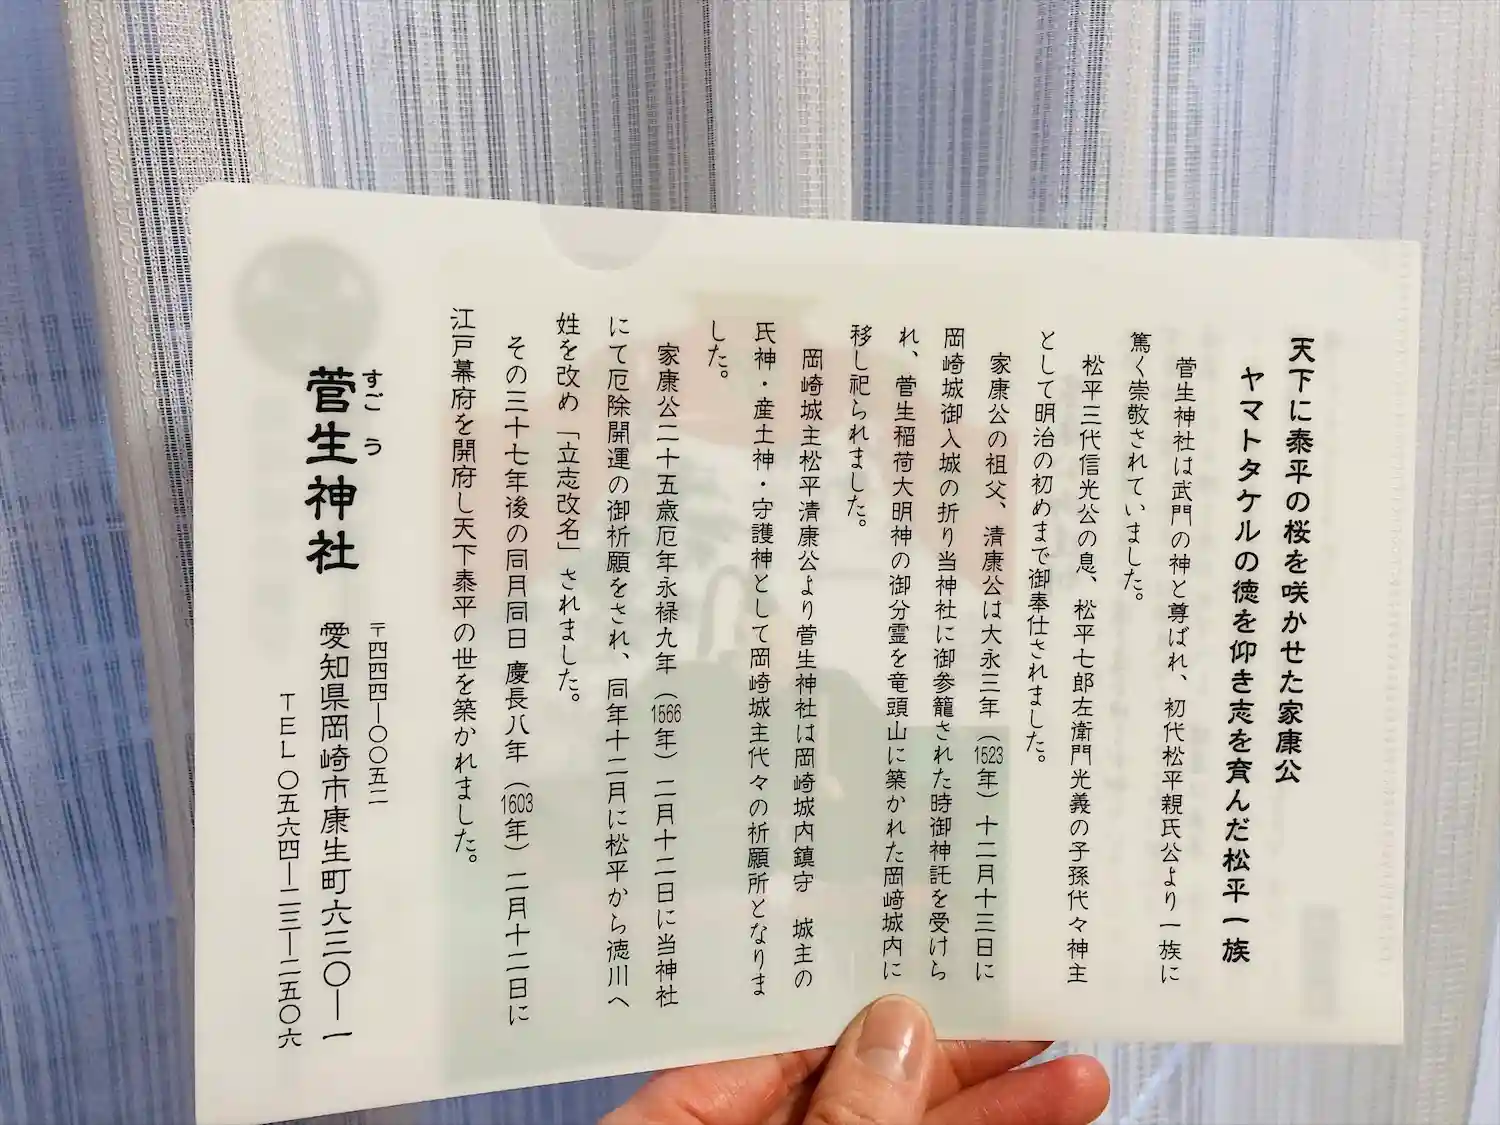 天下に泰平の桜を咲かせた家康公
ヤマトタケルの徳を仰き志を育んだ松平一族
菅生神社は武門の神と尊ばれ、初代松平親氏公より一族に
篤く崇敬されていました。
松平三代信光公の息、松平七郎左衛門光義の子孫代々神主
として明治の初めまで御奉仕されました。
家康公の祖父、清康公は大永三年（1523年）十二月十三日に
岡崎城御入城の折り当神社に御参籠された時御神託を受けら
れ、菅生稲荷大明神の御分霊を竜頭山に築かれた岡﨑城内に
移し祀られました。
岡崎城主松平清康公より菅生神社は岡崎城内鎮守　城主の
氏神・産土神・守護神として岡崎城主代々の祈願所となりま
した。
家康公二十五歳厄年永禄九年（1566年）二月十二日に当神社
にて厄除開運の御祈願をされ、同年十二月に松平から徳川へ
姓を改め「立志改名」されました。
その三十七年後の同月同日 慶長八年（1603年）二月十二日に
江戸幕府を開府し天下泰平の世を築かれました。
すごう
菅生神社
〒四四四―〇〇五二
愛知県岡崎市康生町六三〇―一
ＴＥＬ〇五六四―二三―二五〇六